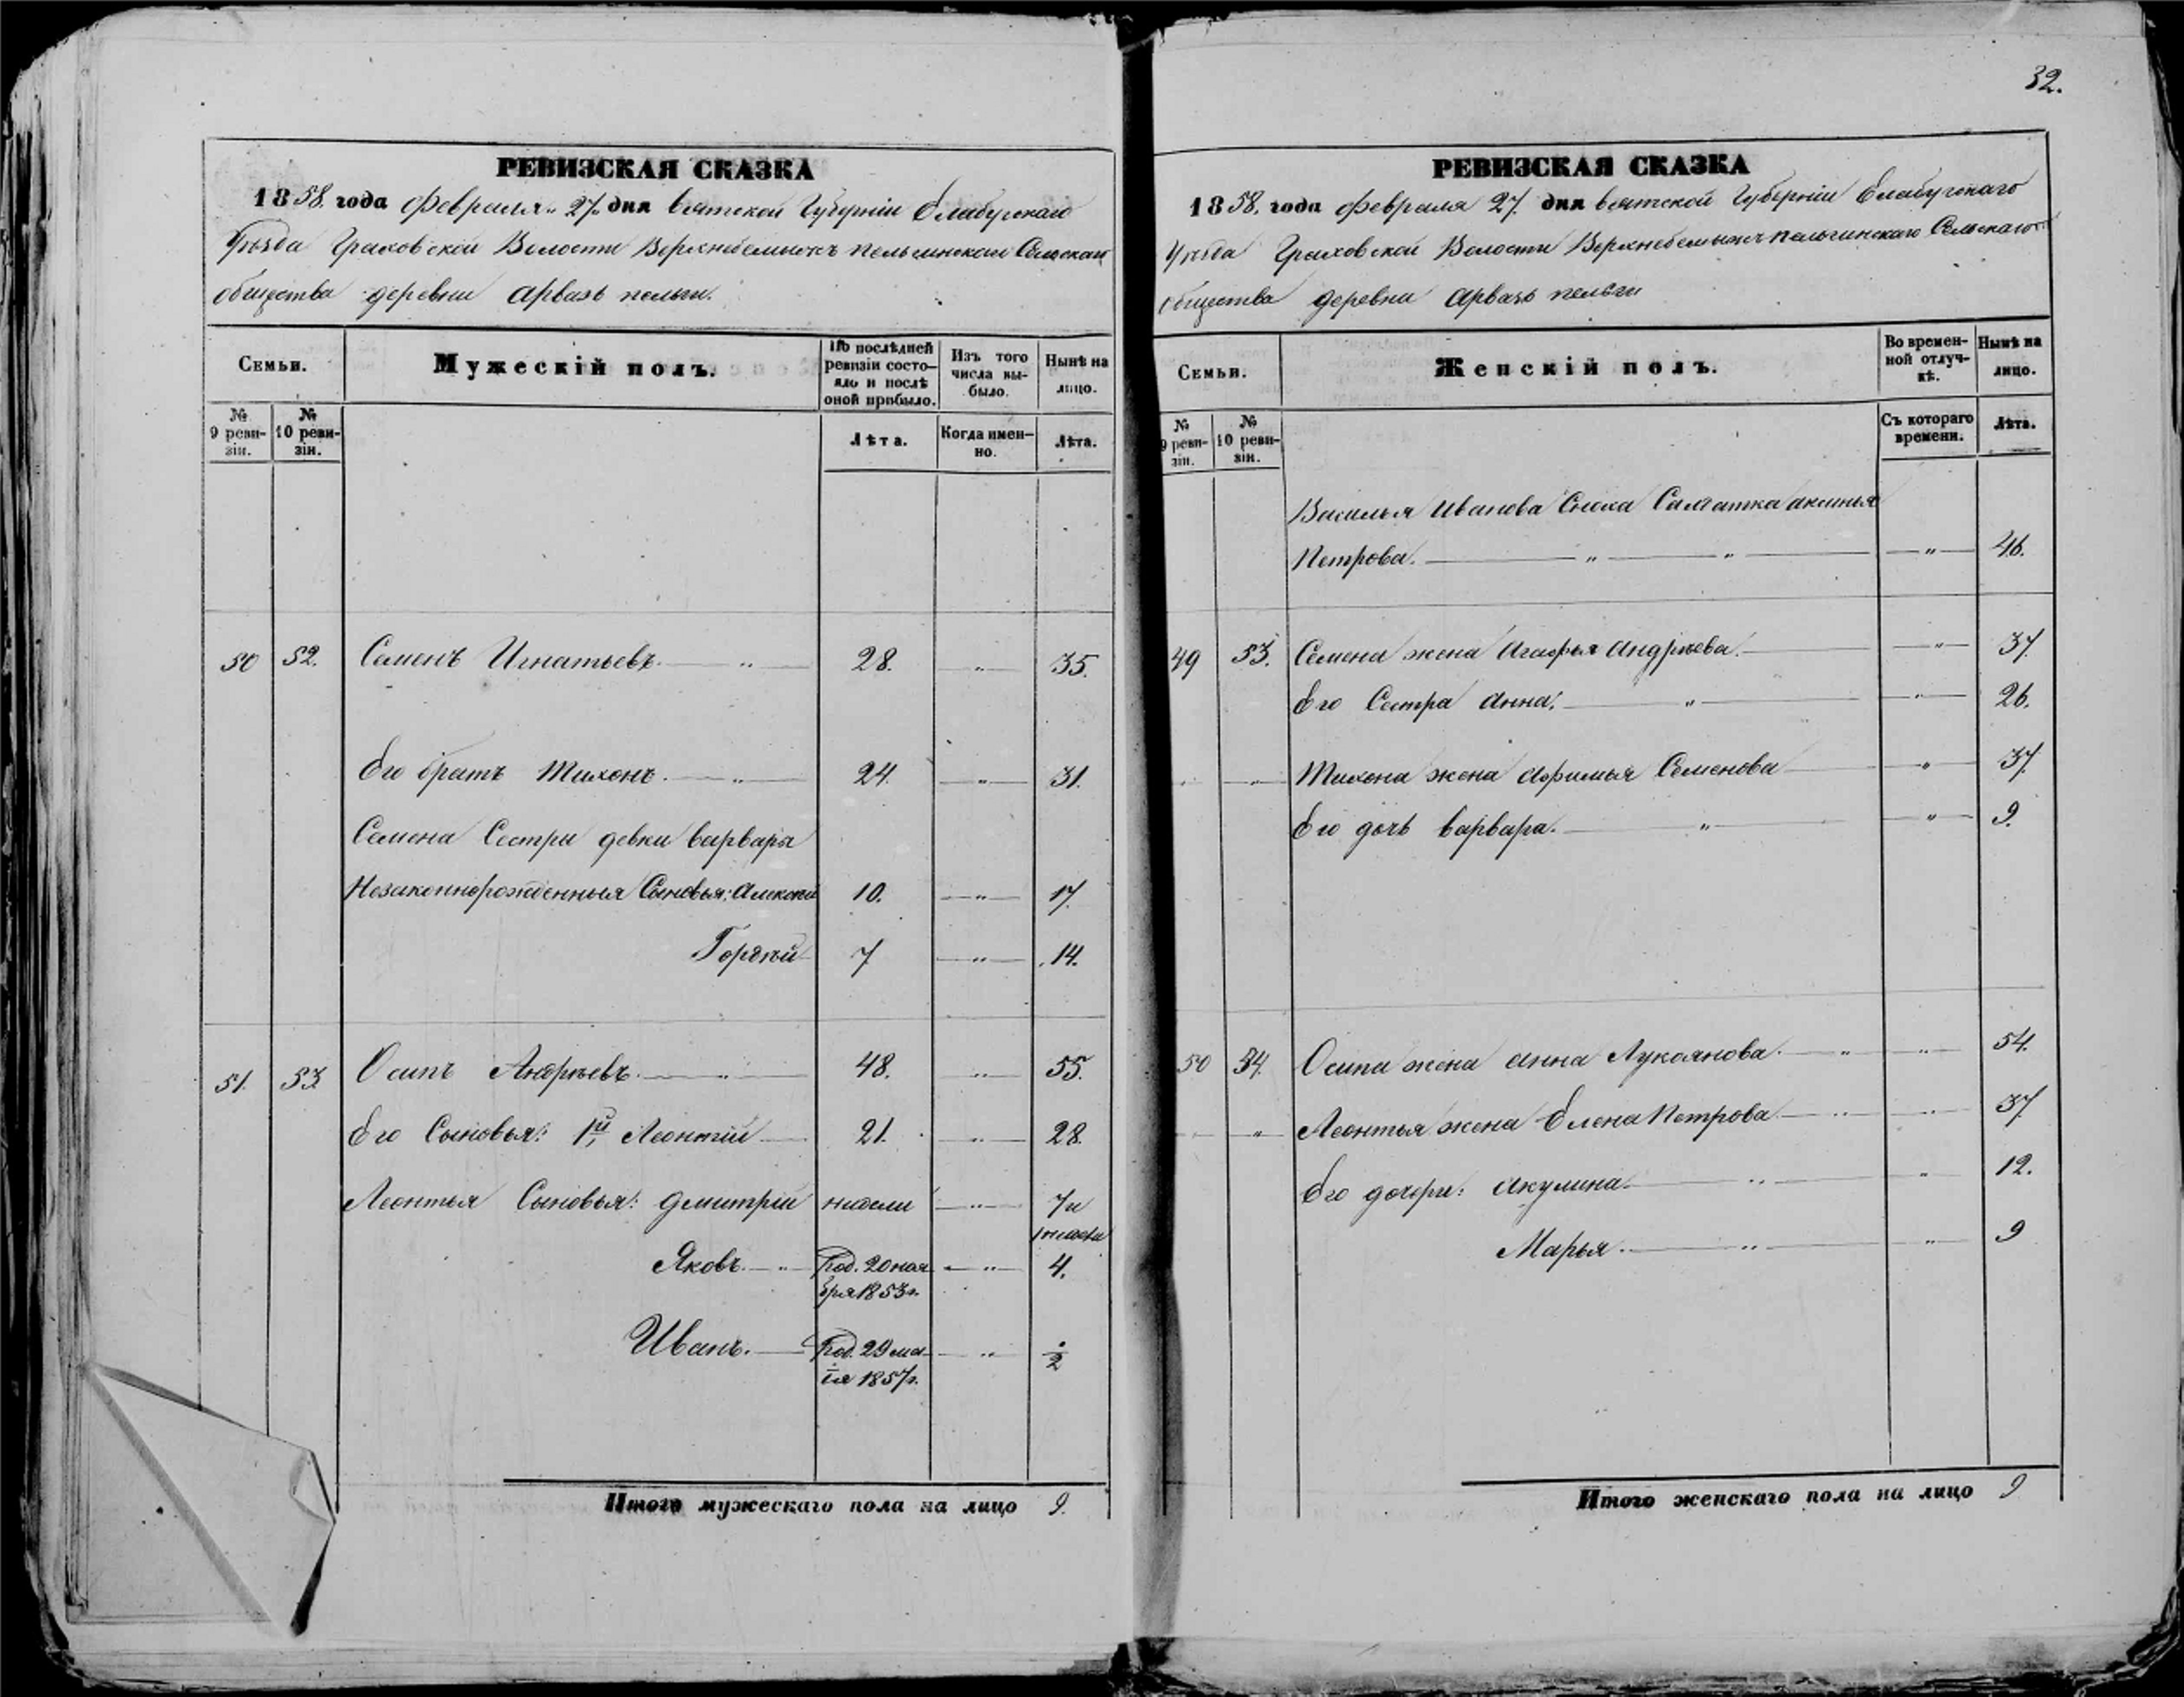 32.
РЕВИЗСКАЯ СКАЗКА
1858. года Февраля 27. дня Вятской Губерніи Елабугскаго
Уѣзда Граховской Волости Верхнебемыжъ пельгинскаго Сельскаго
общества деревни Арвазь пельги.
Семьи.
Мужескій полъ.
По послѣдней ревизіи состояло и послѣ оной прибыло.
Изъ того числа выбыло.
Нынѣ на лицо.
№ 9 ревизіи.
№ 10 ревизіи.
Лѣта.
Когда именно.
Лѣта.
50 52. Семенъ Игнатьевъ. — „ — 28. „ — 35.
Его братъ Тихонъ. — „ — 24. — „ — 31.
Семена Сестры девки Варвары
Незаконнорожденныя Сыновья: Алексей 10. — „ — 17.
Гордѣй 7 — „ — 14.
51. 53 Осипъ Андрѣевъ. — „ — 48. — „ — 55.
Его Сыновья: 1й Леонтій — 21. — „ — 28.
Леонтья Сыновья: Дмитрій недели — „ — 7 и
Яковъ. — „ — Род. 20 ноя — „ — 4.
бря 1853 г.
Иванъ. — Род. 29 ма — „ — ½
ія 1857 г.
Итого мужескаго пола на лицо 9.
РЕВИЗСКАЯ СКАЗКА
1858. года Февраля 27. дня Вятской Губерніи Елабугскаго
Уѣзда Граховской Волости Верхнебемыжъ пельгинскаго Сельскаго
общества деревни Арвазь пельги
Семьи.
Женскій полъ.
Во временной отлучкѣ.
Нынѣ на лицо.
№ 9 ревизіи.
№ 10 ревизіи.
Съ котораго времени.
Лѣта.
Василья Иванова Сноха Салдатка Аксинья
Петрова. — „ — „ — — „ — 46.
49 53. Семена жена Агафья Андрѣева. — — „ — 37.
Его Сестра Анна. — „ — — „ — 26.
„ „ Тихона жена Афимья Семенова — — „ — 37.
Его дочь Варвара. — „ — — „ — 9.
50 54. Осипа жена Анна Лукоянова. — „ — „ — 54.
„ „ Леонтья жена Елена Петрова — „ — „ — 37.
Его дочери: Акулина. — „ — „ — 12.
Марья. — „ — „ — 9
Итого женскаго пола на лицо 9